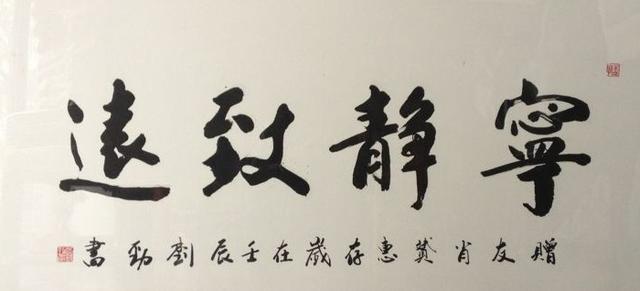 寧静致遠
贈友肖贊惠存歲在壬辰劉勁書